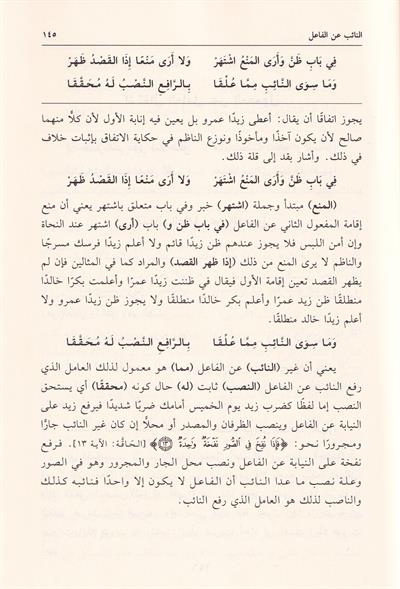 النائب عن الفاعل
١٤٥
فِي بَابِ ظَنَّ وَأَرَى المَنْعُ اشْتَهَرْ وَلا أَرَى مَنْعًا إِذَا القَصْدُ ظَهَرْ
وَمَا سِوَى النَّائِبِ مِمَّا عُلِّقَا بِالرَّافِعِ النَّصْبُ لَهُ مُحَقَّقَا
يجوز اتفاقًا أن يقال: أعطى زيدًا عمرو بل يعين فيه إنابة الأول لأن كلًّا منهما
صالح لأن يكون آخذًا ومأخوذًا ونوزع الناظم في حكاية الاتفاق بإثبات خلاف
في ذلك. وأشار بقد إلى قلة ذلك.
فِي بَابِ ظَنَّ وَأَرَى المَنْعُ اشْتَهَرْ وَلا أَرَى مَنْعًا إِذَا القَصْدُ ظَهَرْ
(المنع) مبتدأ وجملة (اشتهر) خبر وفي باب متعلق باشتهر يعني أن منع
إقامة المفعول الثاني عن الفاعل (في باب ظن و) باب (أرى) اشتهر عند النحاة
وإن أمن اللبس فلا يجوز عندهم ظن زيدًا قائم ولا أعلم زيدًا فرسك مسرجًا
والناظم لا يرى المنع من ذلك (إذا ظهر القصد) والمراد كما في المثالين فإن لم
يظهر القصد تعين إقامة الأول فيقال في ظننت زيدًا عمرًا وأعلمت بكرًا خالدًا
منطلقًا ظن زيد عمرًا وأعلم بكر خالدًا منطلقًا ولا يجوز ظن زيدًا عمرو ولا
أعلم زيدًا خالد منطلقًا.
وَمَا سِوَى النَّائِبِ مِمَّا عُلِّقَا بِالرَّافِعِ النَّصْبُ لَهُ مُحَقَّقَا
يعني أن غير (النائب) عن الفاعل (مما) هو معمول لذلك العامل الذي
رفع النائب عن الفاعل (النصب) ثابت (له) حال كونه (محققا) أي يستحق
النصب إما لفظًا كضرب زيد يوم الخميس أمامك ضربًا شديدًا فيرفع زيد على
النيابة عن الفاعل وينصب الظرفان والمصدر أو محلًا إن كان غير النائب جارًّا
ومجرورًا نحو: ﴿فَإِذَا نُفِخَ فِي ٱلصُّورِ نَفْخَةٌ وَٰحِدَةٌ ۝١٣﴾ [الحَاقَّة: الآية ١٣]. فرفع
نفخة على النيابة عن الفاعل ونصب محل الجار والمجرور وهو في الصور
وعلة نصب ما عدا النائب أن الفاعل لا يكون إلا واحدًا فنائبه كذلك
والناصب لذلك هو العامل الذي رفع النائب.